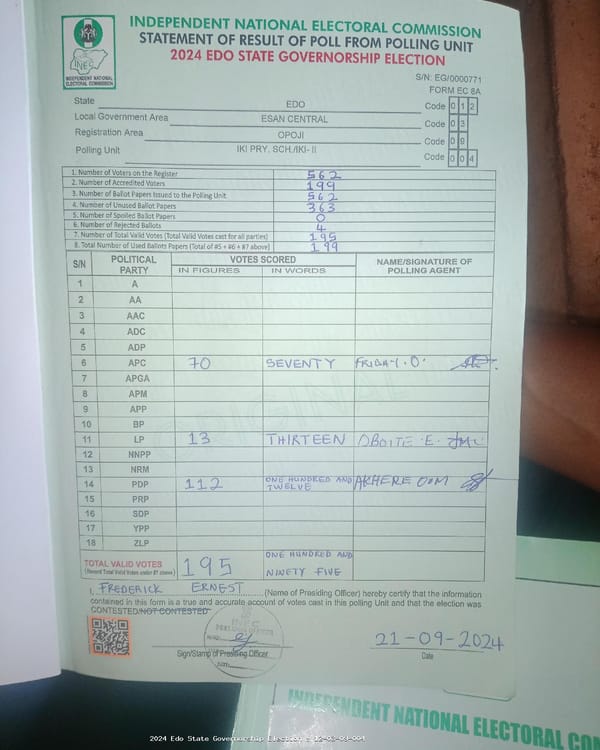 INDEPENDENT NATIONAL ELECTORAL COMMISSION
STATEMENT OF RESULT OF POLL FROM POLLING UNIT
2024 EDO STATE GOVERNORSHIP ELECTION
INEC
INDEPENDENT NATIONAL
ELECTORAL COMMISSION
S/N: EG/0000771
FORM EC 8A
State EDO Code 0 1 2
Local Government Area ESAN CENTRAL Code 0 3
Registration Area OPOJI Code 0 9
Polling Unit IKI PRY. SCH./IKI- II Code 0 0 4
1. Number of Voters on the Register 562
2. Number of Accredited Voters 199
3. Number of Ballot Papers Issued to the Polling Unit 562
4. Number of Unused Ballot Papers 363
5. Number of Spoiled Ballot Papers 0
6. Number of Rejected Ballots 4
7. Number of Total Valid Votes (Total Valid Votes cast for all parties) 195
8. Total Number of Used Ballots Papers (Total of #5 + #6 + #7 above) 199
S/N POLITICAL PARTY VOTES SCORED NAME/SIGNATURE OF POLLING AGENT
IN FIGURES IN WORDS
1 A
2 AA
3 AAC
4 ADC
5 ADP
6 APC 70 SEVENTY FRIDAY.O.
7 APGA
8 APM
9 APP
10 BP
11 LP 13 THIRTEEN OBOITE .E.
12 NNPP
13 NRM
14 PDP 112 ONE HUNDRED AND TWELVE AKHERE ODM
15 PRP
16 SDP
17 YPP
18 ZLP
TOTAL VALID VOTES 195 ONE HUNDRED AND
(Record Total Valid Votes under #7 above) NINETY FIVE
I, FREDERICK ERNEST (Name of Presiding Officer) hereby certify that the information
contained in this form is a true and accurate account of votes cast in this polling Unit and that the election was
CONTESTED/NOT CONTESTED
INEC
PRESIDING OFFICER
21-09-2024
Sign/Stamp of Presiding Officer
Date
INDEPENDENT NATIONAL ELECTORAL COM
2024 Edo State Governorship Election - 12-03-09-004